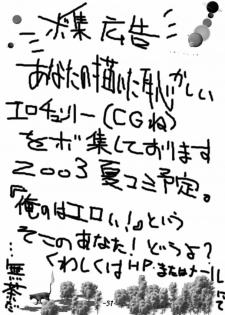 ボ集広告
あなたの描いた恥かしい
エロチュリー(CGね)
をボ集しております
2003夏コミ予定。
『俺のはエロい!』という
そこのあなた!どうよ?
くわしくはHP.またはメールにて
…無茶だ
-31-